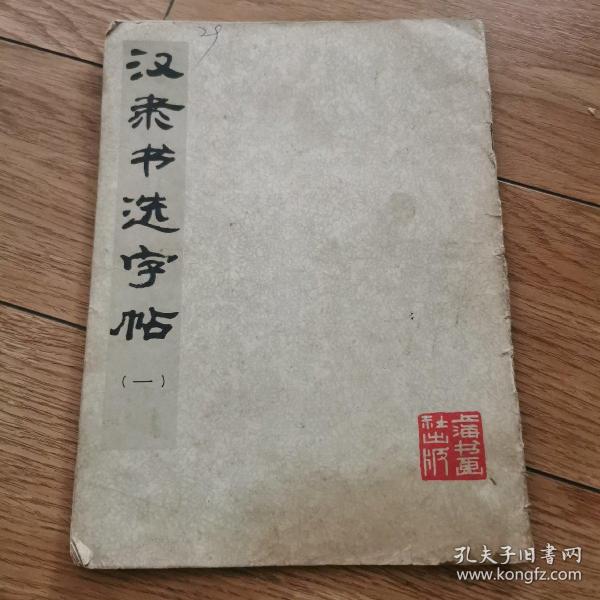 29
汉隶书选字帖
（一）
上海书画
社出版
孔夫子旧书网
www.kongfz.com